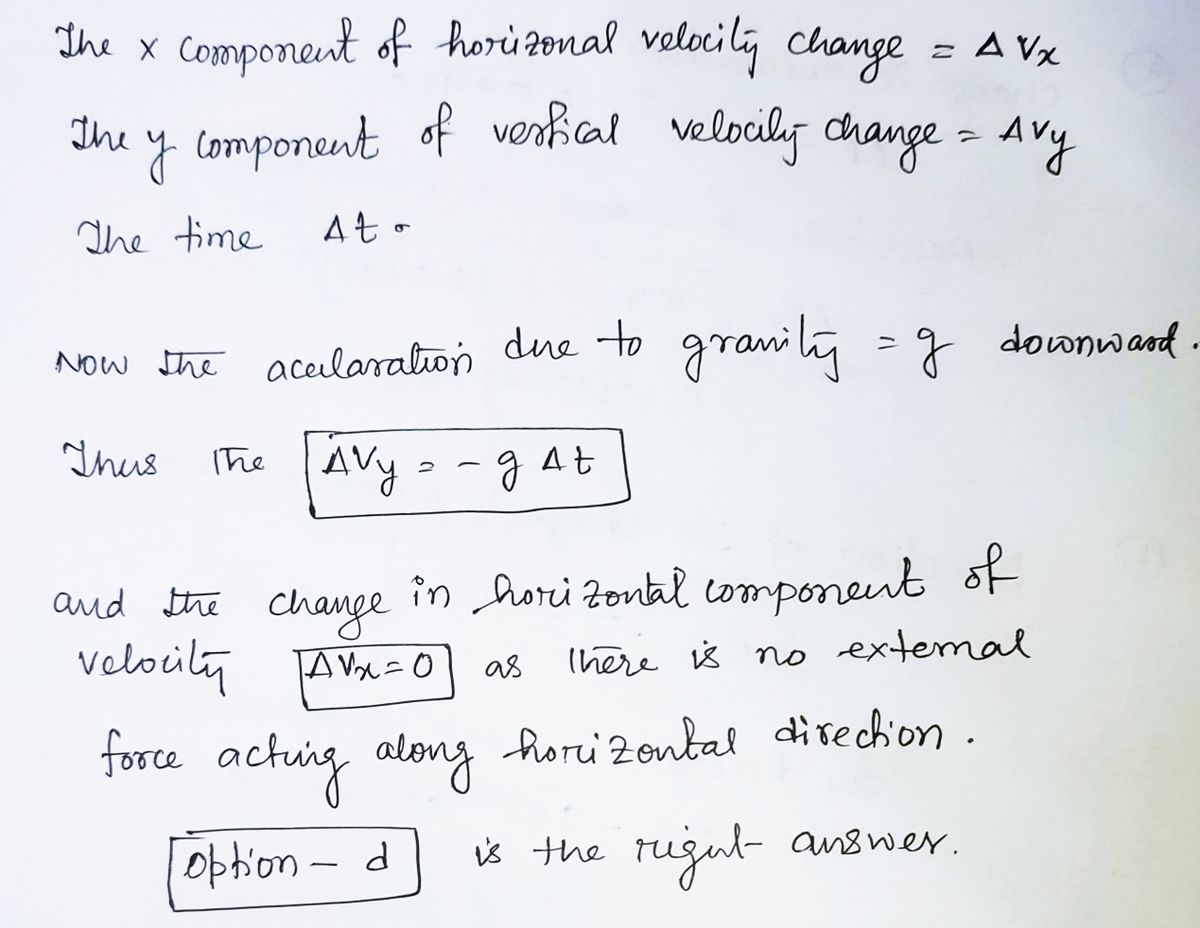 The x component of horizonal velocity change = Δ Vx
The y component of vertical velocity change = ΔVy
The time Δt
Now the acelaration due to gravity = g downward.
Thus The ΔVy = - g Δt
and the change in horizontal component of
velocity ΔVx = 0 as there is no external
force acting along horizontal direction.
option - d is the right answer.